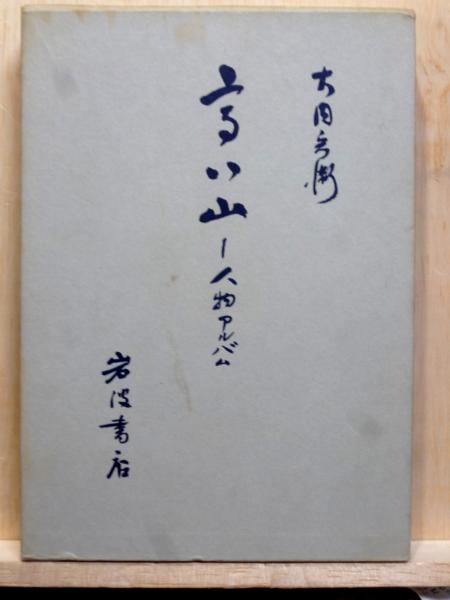 大内兵衛
高い山
―人物アルバム
岩波書店